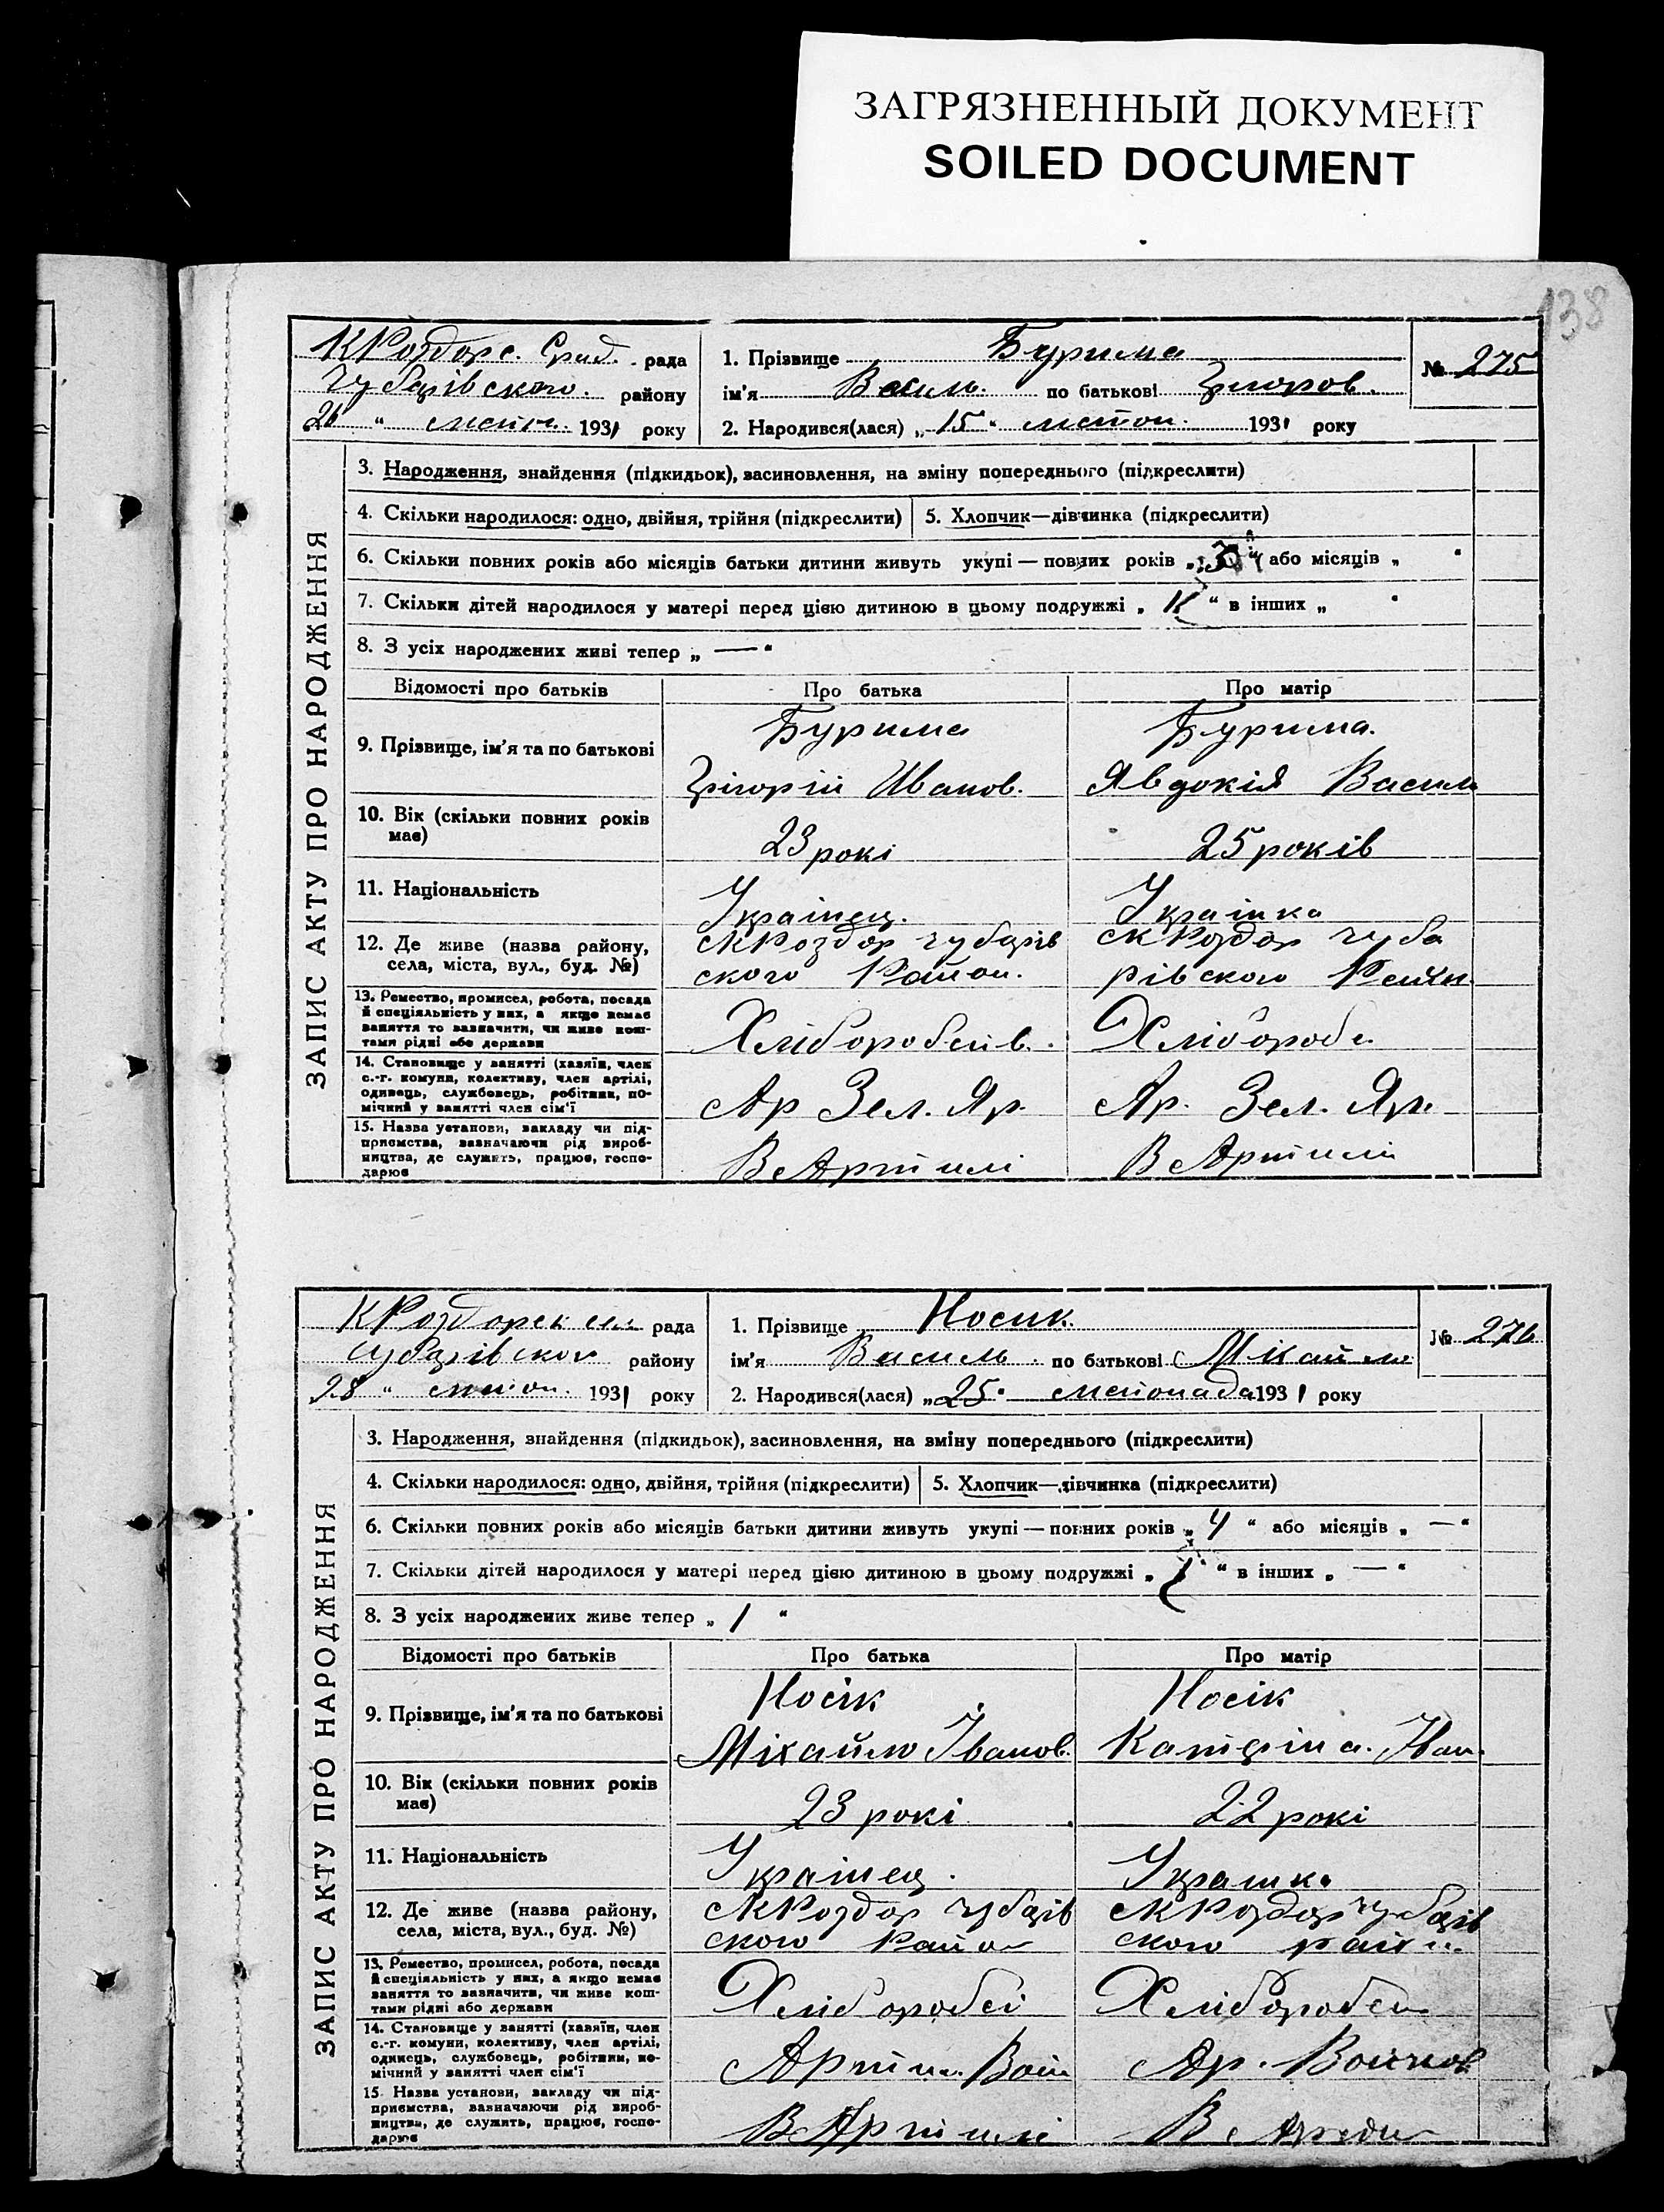 ЗАГРЯЗНЕННЫЙ ДОКУМЕНТ
SOILED DOCUMENT
138
КРоздорс. Срад. рада
Чубарівского. району
26 " листоп. 1931 року
1. Прізвище Бурима
ім'я Василь. по батькові Григоров.
2. Народився(лася) „ 15 " листоп. 1931 року
№ 275
ЗАПИС АКТУ ПРО НАРОДЖЕННЯ
3. Народження, знайдення (підкидьок), засиновлення, на зміну попереднього (підкреслити)
4. Скільки народилося: одно, двійня, трійня (підкреслити) 5. Хлопчик—дівчинка (підкреслити)
6. Скільки повних років або місяців батьки дитини живуть укупі — повних років „ " або місяців „ "
7. Скільки дітей народилося у матері перед цією дитиною в цьому подружжі „ " в інших „ "
8. З усіх народжених живі тепер „ — "
Відомості про батьків Про батька Про матір
9. Прізвище, ім'я та по батькові
Бурима Бурима.
Грігорій Иванов. Явдокія Василь
10. Вік (скільки повних років має)
23 рокі 25 років
11. Національність
Українец. Українка
12. Де живе (назва району, села, міста, вул., буд. №)
сКРоздор чубарів скРоздор чуба
ского Район. рівского Район.
13. Ремество, промисел, робота, посада й спеціяльність у них, а якщо немає заняття то зазначити, чи живе коштами рідні або держави
Хліборобств. Хлібороб
14. Становище у занятті (хазяїн, член с.-г. комуни, колективу, член артілі, одинець, службовець, робітник, помічний у занятті член сім'ї
Ар Зел. Яр. Ар. Зел. Яр.
15. Назва установи, закладу чи підприємства, зазначаючи рід виробництва, де служить, працює, господарює
В Артилі В Артилі
КРоздорск рада
Чубарівского району
28 " листоп. 1931 року
1. Прізвище Носик.
ім'я Василь. по батькові Міхайл
2. Народився(лася) „ 25 " листопада 1931 року
№ 276
ЗАПИС АКТУ ПРО НАРОДЖЕННЯ
3. Народження, знайдення (підкидьок), засиновлення, на зміну попереднього (підкреслити)
4. Скільки народилося: одно, двійня, трійня (підкреслити) 5. Хлопчик—дівчинка (підкреслити)
6. Скільки повних років або місяців батьки дитини живуть укупі — повних років „ 4 " або місяців „ — "
7. Скільки дітей народилося у матері перед цією дитиною в цьому подружжі „ 1 " в інших „ — "
8. З усіх народжених живе тепер „ 1 "
Відомості про батьків Про батька Про матір
9. Прізвище, ім'я та по батькові
Носік Носік
Міхайло Іванов. Катеріна. Іван.
10. Вік (скільки повних років має)
23 рокі 22 рокі
11. Національність
Українец. Українка
12. Де живе (назва району, села, міста, вул., буд. №)
сКРоздор чубарів сКРоздор чубарів
ского Район ского район
13. Ремество, промисел, робота, посада й спеціяльність у них, а якщо немає заняття то зазначити, чи живе коштами рідні або держави
Хліборобст Хліборобст
14. Становище у занятті (хазяїн, член с.-г. комуни, колективу, член артілі, одинець, службовець, робітник, помічний у занятті член сім'ї
Артил. Ар.
15 Назва установи, закладу чи підприємства, зазначаючи рід виробництва, де служить, працює, господарює
В Артилі В